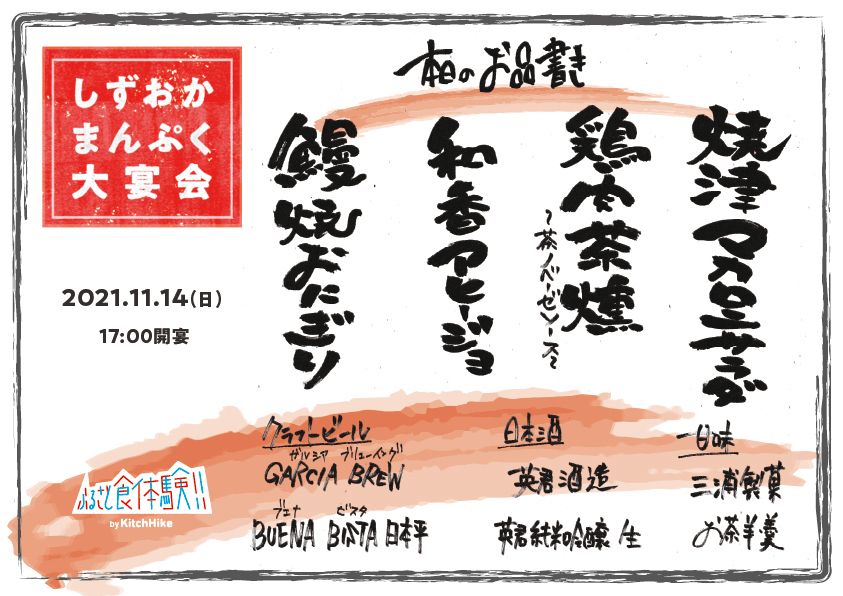 しずおか
まんぷく
大宴会
2021.11.14(日)
17:00開宴
本日のお品書き
焼津マカロニサラダ
鶏肉茶燻
〜茶ノベーゼソース〜
和香アヒージョ
鰻焼おにぎり
クラフトビール
ガルシア ブリューイング
GARCIA BREW
ブエナ ビスタ
BUENA BISTA 日本平
日本酒
英君酒造
英君純米吟醸 生
甘味
三浦製菓
お茶羊羹
ふるさと食体験!!
by KitchHike